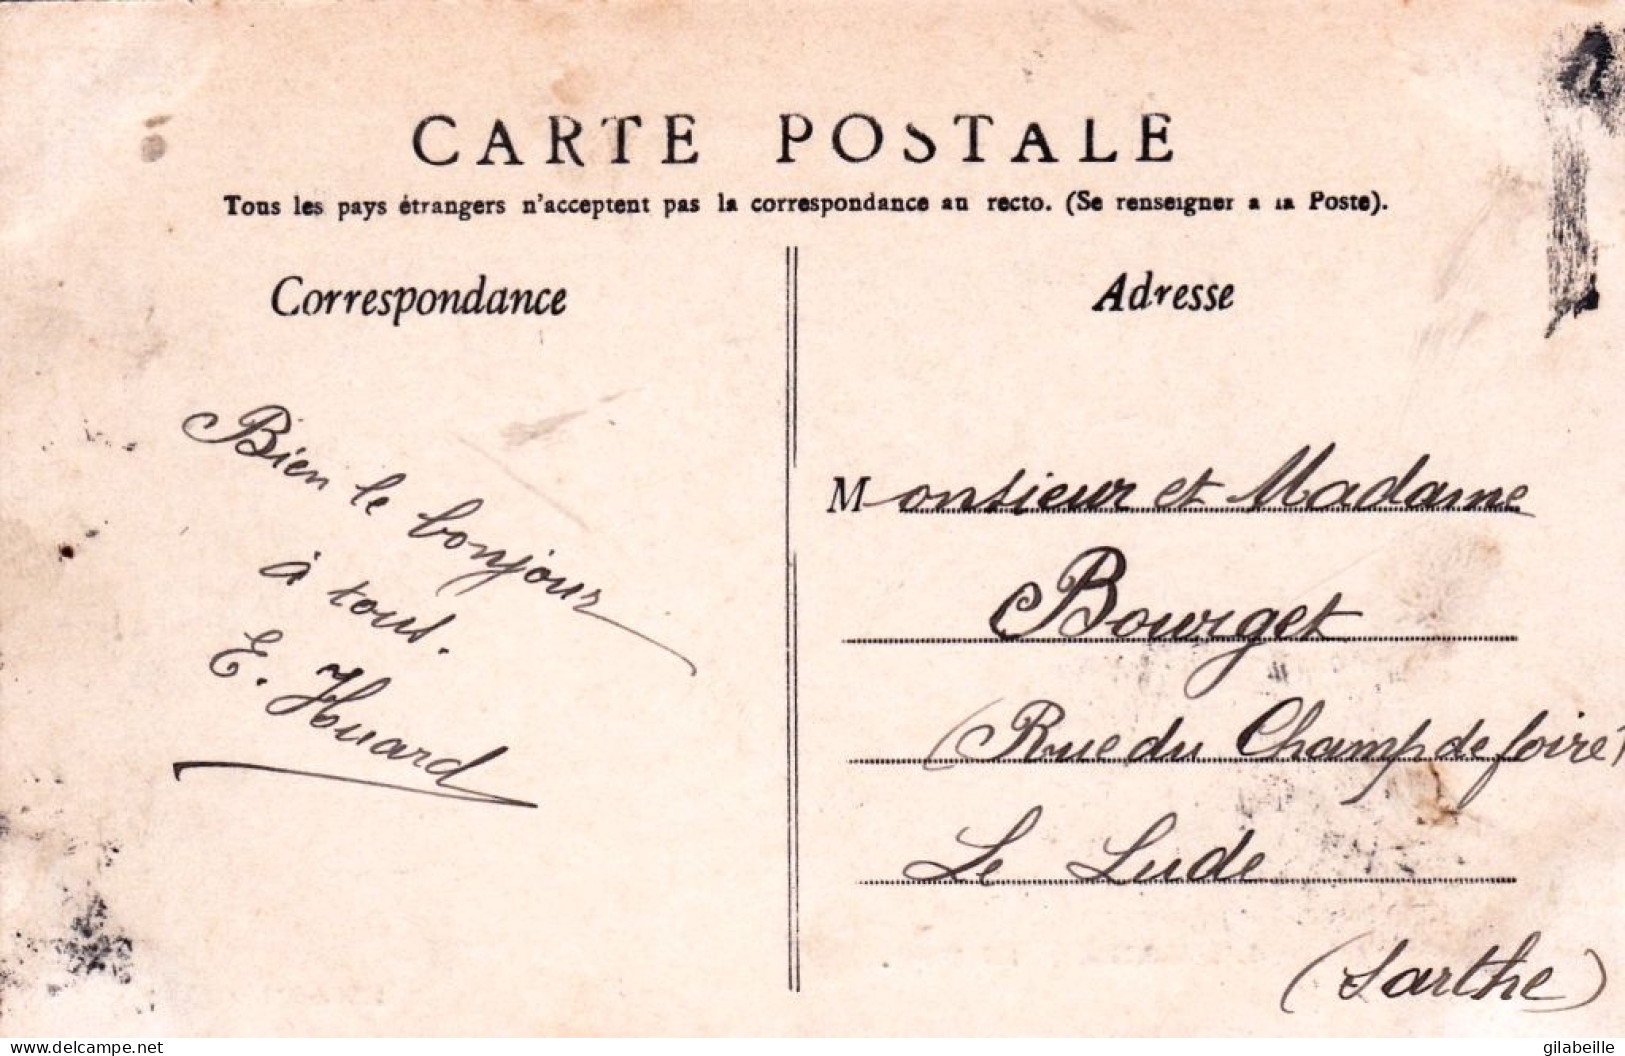 CARTE POSTALE
Tous les pays étrangers n'acceptent pas la correspondance au recto. (Se renseigner a la Poste).
Correspondance
Bien le bonjour
à tous.
E. Houard
Adresse
Monsieur et Madame
Bourget
(Rue du Champ de foire)
Le Lude
(Sarthe)
www.delcampe.net
gilabeille